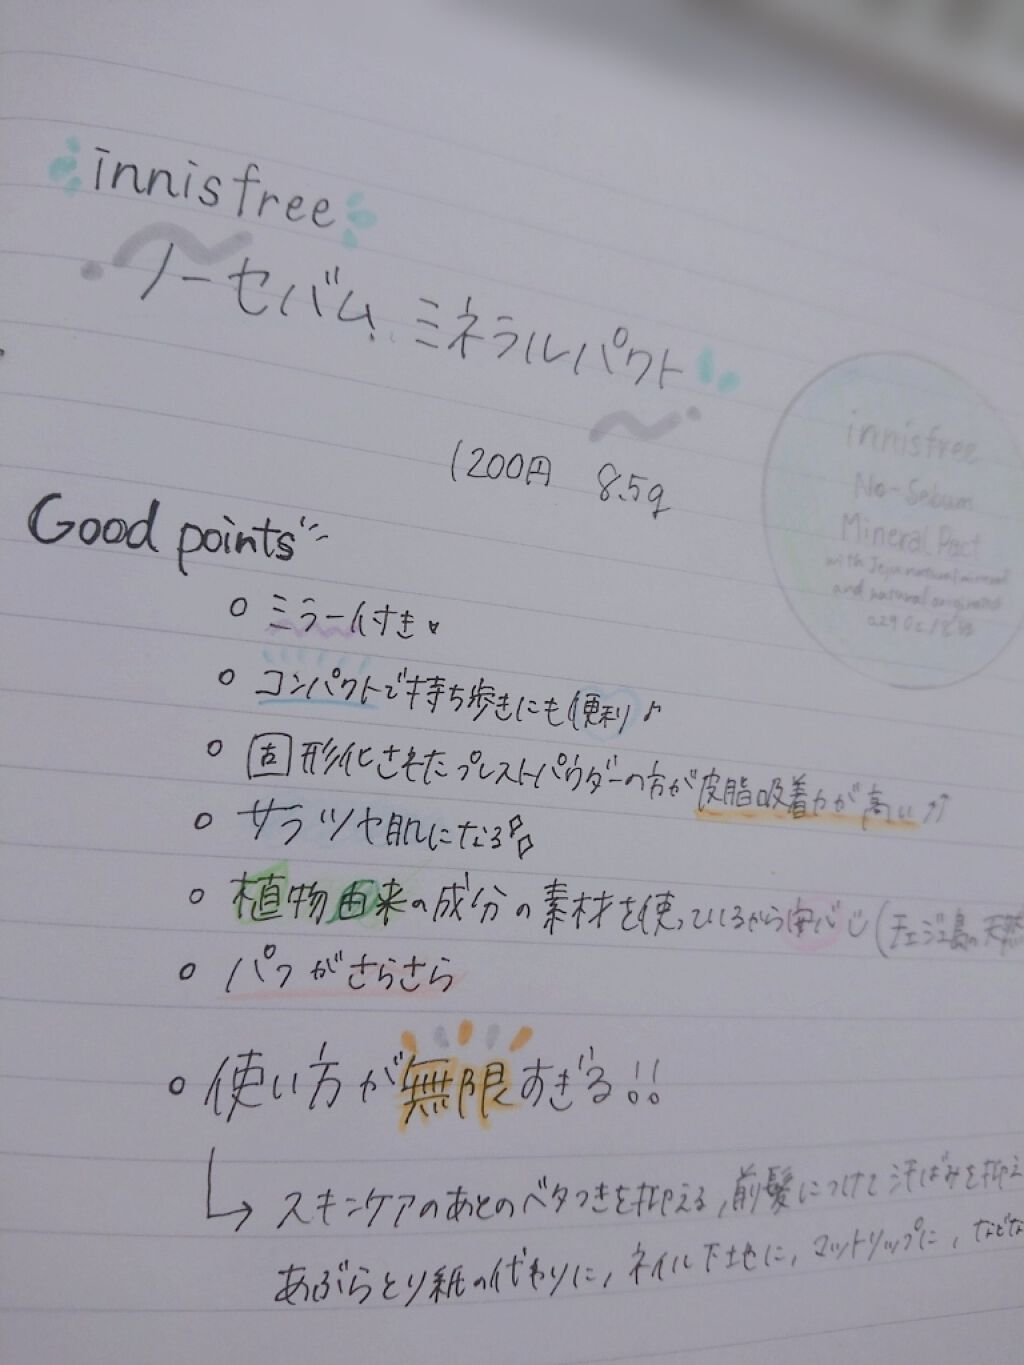 innisfree
ノーセバム ミネラルパクト
1200円 8.5g
innisfree
No-Sebum
Mineral Pact
with Jeju natural mineral
and natural
Good points
ミラー付き
コンパクトで持ち歩きにも便利♪
固形化されたプレストパウダーの方が皮脂吸着力が高い↑↑
サラツヤ肌になる
植物由来の成分の素材を使っているから安心(チェジュ島の天然
パフがさらさら
使い方が無限すぎる!!
→スキンケアのあとのベタつきを抑える,前髪につけて汗ばみを抑え
あぶらとり紙の代わりに,ネイル下地に,マットリップに,などな